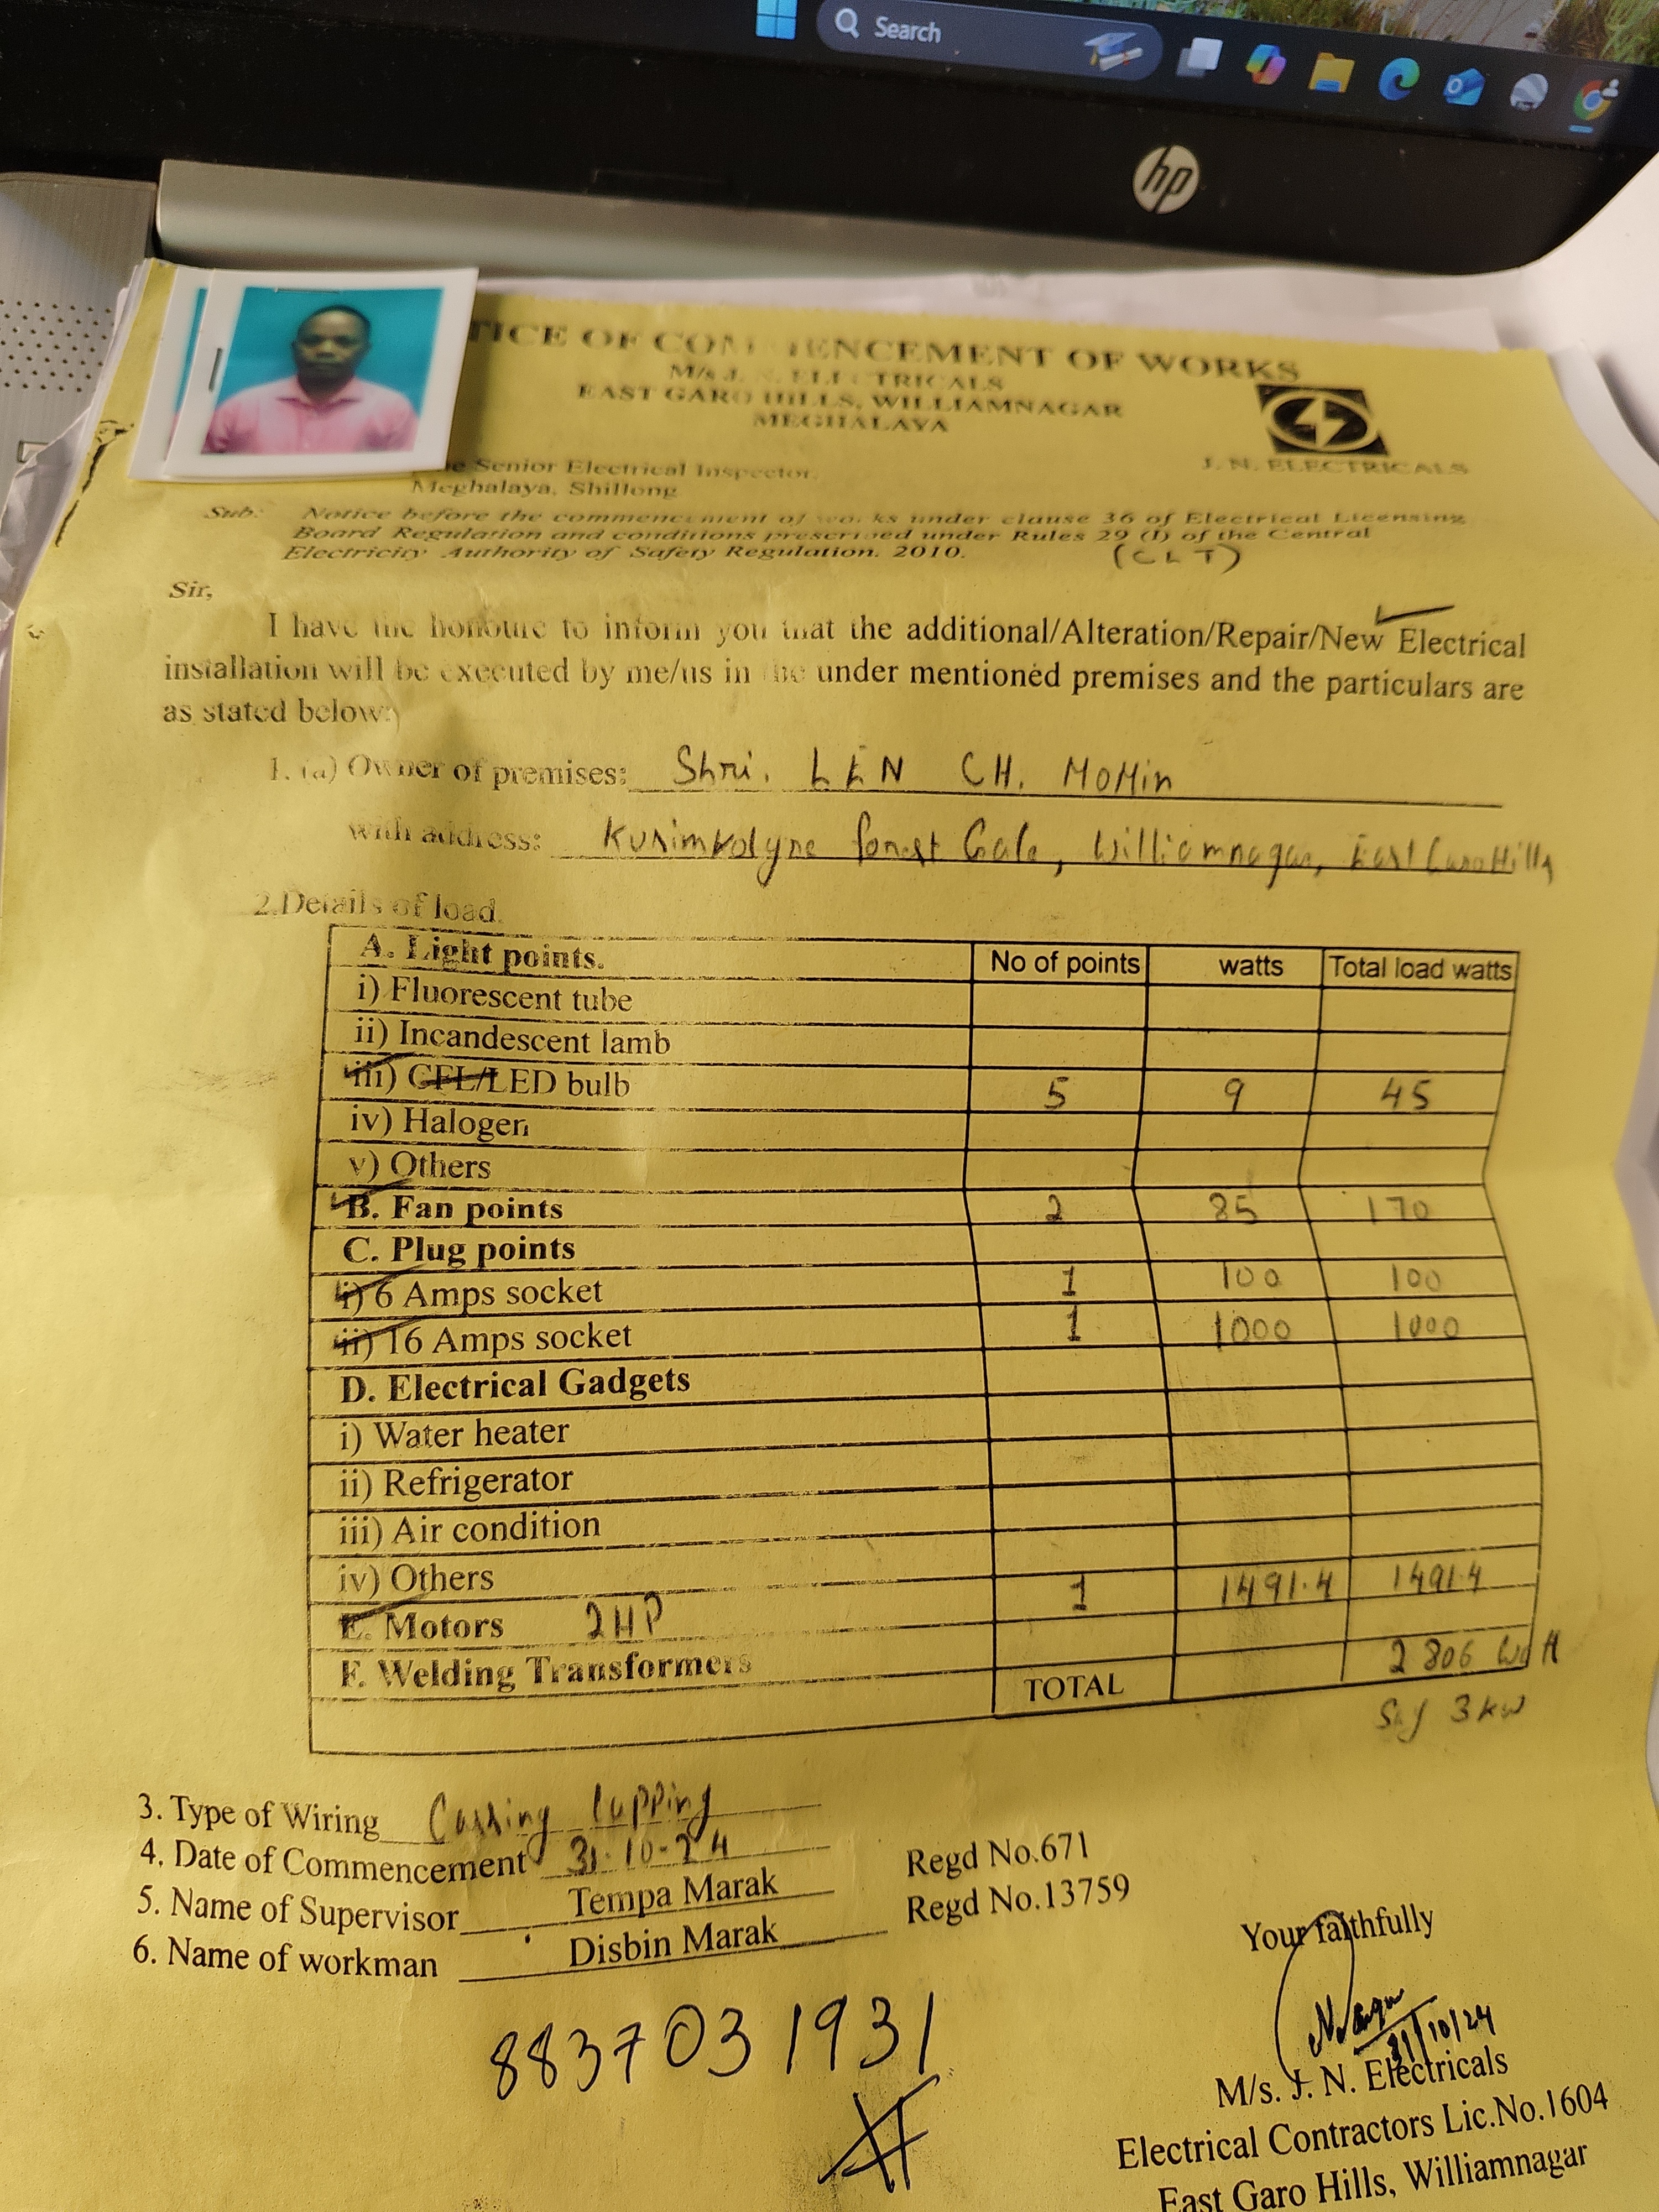 Search
hp
TICE OF COMMENCEMENT OF WORKS
M/s J. N. ELECTRICALS
EAST GARO HILLS, WILLIAMNAGAR
MEGHALAYA
J. N. ELECTRICALS
Senior Electrical Inspector,
Meghalaya, Shillong
Sub: Notice before the commencement of works under clause 36 of Electrical Licensing
Board Regulation and conditions prescrived under Rules 29 (I) of the Central
Electricity Authority of Safety Regulation. 2010.
(CLT)
Sir,
I have the honoure to inform you that the additional/Alteration/Repair/New Electrical
installation will be executed by me/us in the under mentioned premises and the particulars are
as stated below:
1. (a) Owner of premises: Shri. LEN CH. MOMin
with address: forest Gate, Williamnagar, East Garo Hills
2.Details of load.
A. Light points. No of points watts Total load watts
i) Fluorescent tube
ii) Incandescent lamb
iii) CFL/LED bulb 5 9 45
iv) Halogen
v) Others
B. Fan points 2 85 170
C. Plug points
i) 6 Amps socket 1 100 100
ii) 16 Amps socket 1 1000 1000
D. Electrical Gadgets
i) Water heater
ii) Refrigerator
iii) Air condition
iv) Others
E. Motors 2HP 1 1491.4 1491.4
F. Welding Transformers
TOTAL 2806 Watt
Say 3 kw
3. Type of Wiring Cassing Capping
4. Date of Commencement 31-10-24
5. Name of Supervisor Tempa Marak Regd No.671
6. Name of workman Disbin Marak Regd No.13759
8837031931
Your faithfully
31/10/24
M/s. J. N. Electricals
Electrical Contractors Lic.No.1604
East Garo Hills, Williamnagar